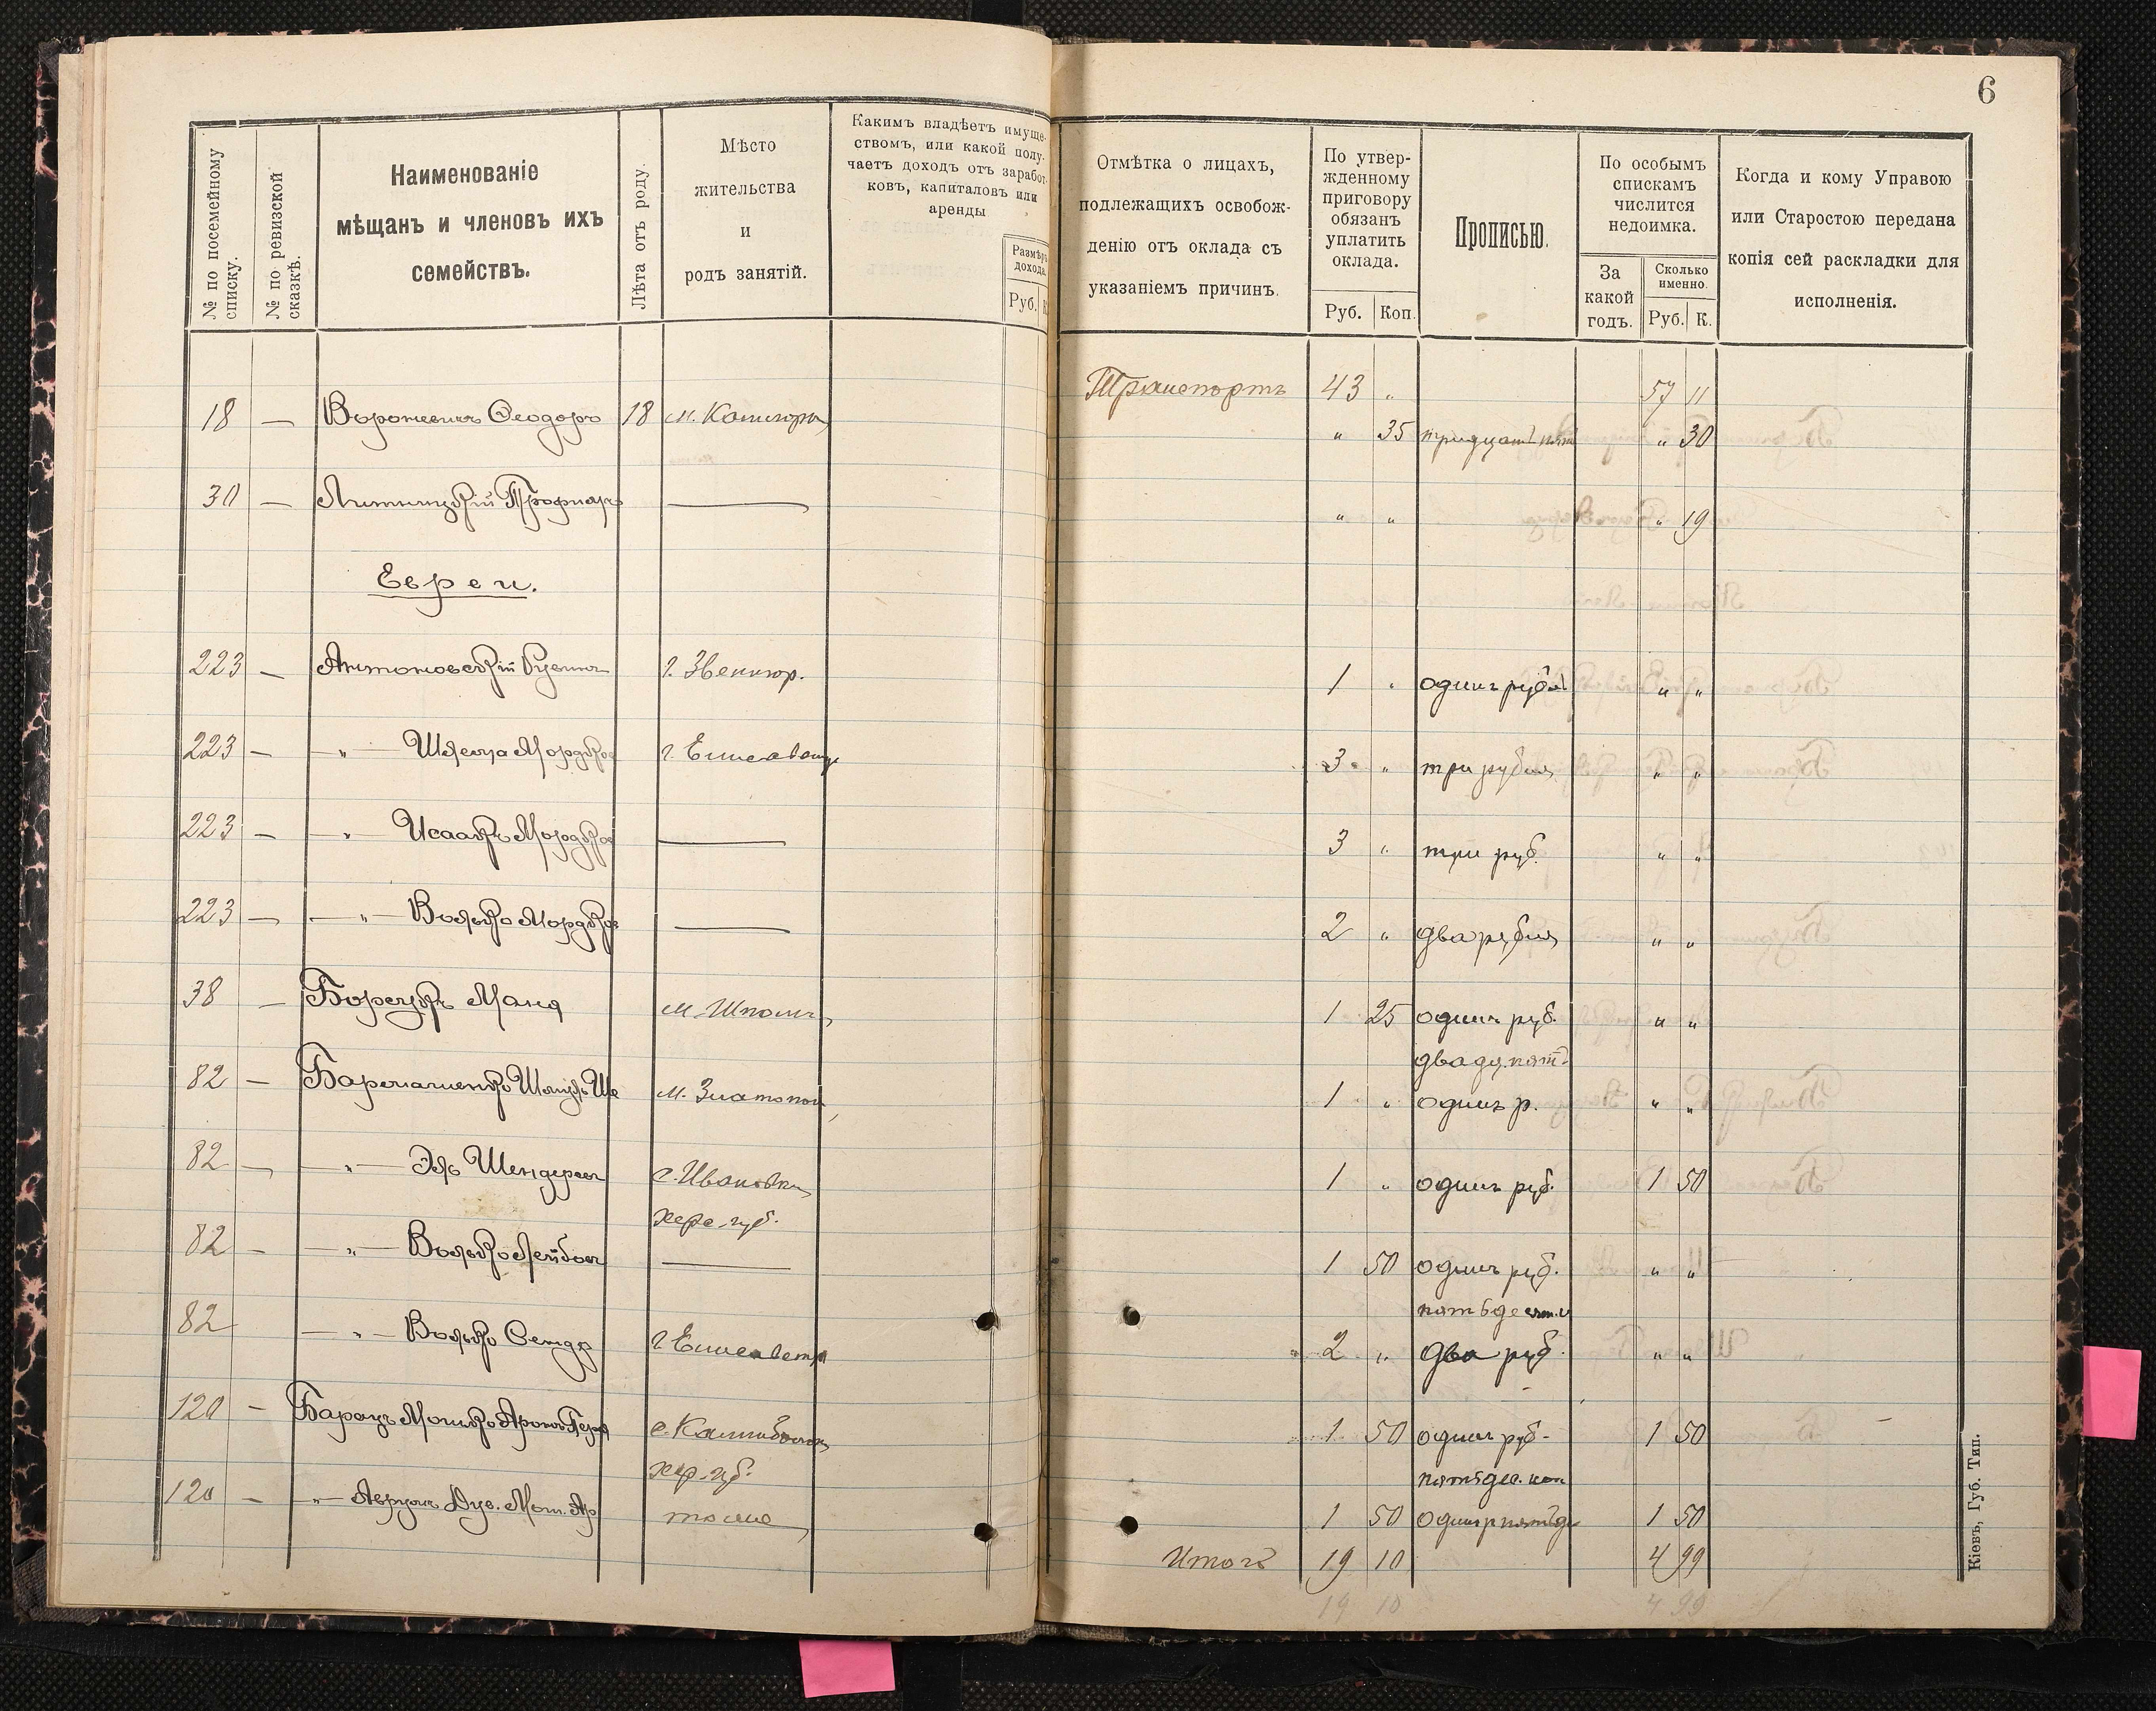 6
№ по посемейному списку.
№ по ревизской сказкѣ.
Наименованіе
мѣщанъ и членовъ ихъ
семействъ.
Лѣта отъ роду.
Мѣсто
жительства
и
родъ занятій.
Какимъ владѣетъ имуще-
ствомъ, или какой полу-
чаетъ доходъ отъ заработ-
ковъ, капиталовъ или
аренды
Размѣръ
дохода.
Руб. К.
Отмѣтка о лицахъ,
подлежащихъ освобож-
денію отъ оклада съ
указаніемъ причинъ.
По утвер-
жденному
приговору
обязанъ
уплатить
оклада.
Руб. Коп.
Прописью.
По особымъ
спискамъ
числится
недоимка.
За
какой
годъ.
Сколько
именно.
Руб. К.
Когда и кому Управою
или Старостою передана
копія сей раскладки для
исполненія.
Транспортъ 43 „ 57 11
18 — Ѳеодоръ 18 „ 35 тридцать пят „ 30
30 — — „ „ „ 19
Евреи.
223 — Антоновскій Рувинъ г. Звенигор. 1 „ одинъ рубль „ „
223 — — „ — Шлема Мордков г. Елисаветг 3 „ три рубля „ „
223 — — „ — Исаакъ Мордков — 3 „ три руб. „ „
223 — — „ — Волько Мордков — 2 „ два рубля „ „
38 — м. Шпола 1 25 одинъ руб. „ „
двадц. пять
82 — м. Златопол 1 „ одинъ р. „ „
82 — — „ — Эль Шендеров с. Ивановка 1 „ одинъ руб. 1 50
Хере. губ.
82 — — „ — Волько Лейбов — 1 50 одинъ руб. „ „
пятьдесят.
82 — „ — Волько Сендр г. Елисаветг 2 „ два руб. „ „
120 — Мошко Аронъ 1 50 одинъ руб. 1 50
Хер. губ. пятьдес. коп
120 — — „ — Аврумъ Дув. Мош. Ар тоже 1 50 одинъ р пятьде 1 50
Итого 19 10 4 99
19 10 4 99
Кіевъ, Губ. Тип.